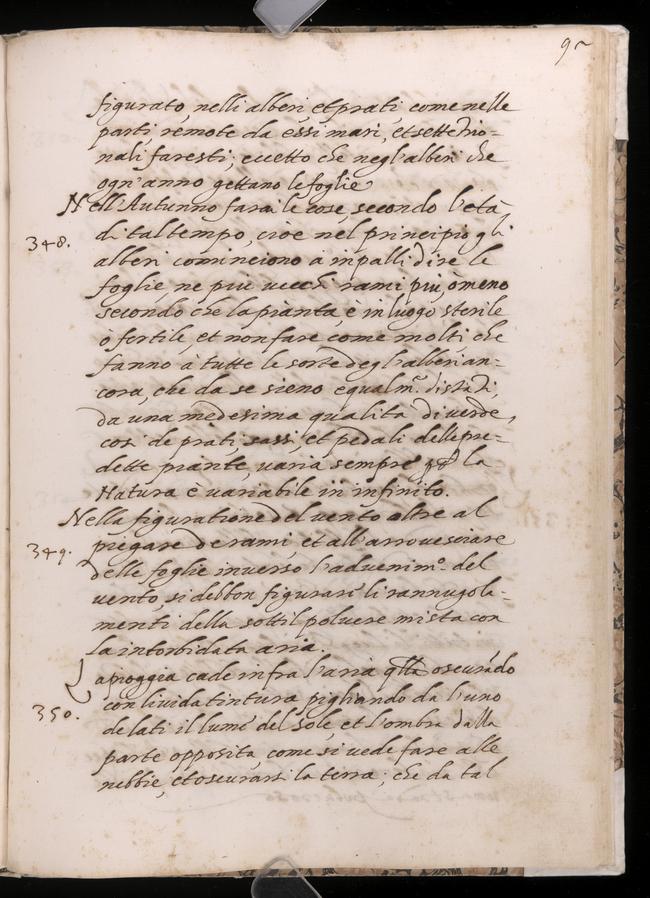 figurato, nelli alberi et prati come nelle
parti remote da essi mari, et settetrio-
nali faresti; eccetto che negl'alberi che
ogn'anno gettano le foglie
Nell'Autunno farai le cose, secondo l'età
348.
di tal tempo, cioè nel principio gli
alberi cominciono à impallidire le
foglie, ne più vecchi rami più, ò meno
secondo che la pianta, è in luogo sterile
ò fertile, et non fare come molti che
fanno à tutte le sorte degl'alberi an-
cora, che da se sieno equalm.te distati,
da una medesima qualità di verde,
cosi de prati, sassi, et pedali delle pre-
dette piante, varia sempre la
Natura è variabile in infinito.
Nella figuratione del vento oltre al
349.
piegare de rami, et all'arrovesciare
delle foglie inverso l'advenim.o del
vento, si debbon figurare li rannugola-
menti della sottil polvere mista con
la intorbidata aria.
La pioggia cade infra l'aria qlla oscurado
350.
con livida tintura pigliando da l'uno
de lati il lume del sole, et l'ombra dalla
parte opposita, come si vede fare alle
nebbie, et oscurarsi la terra; che da tal